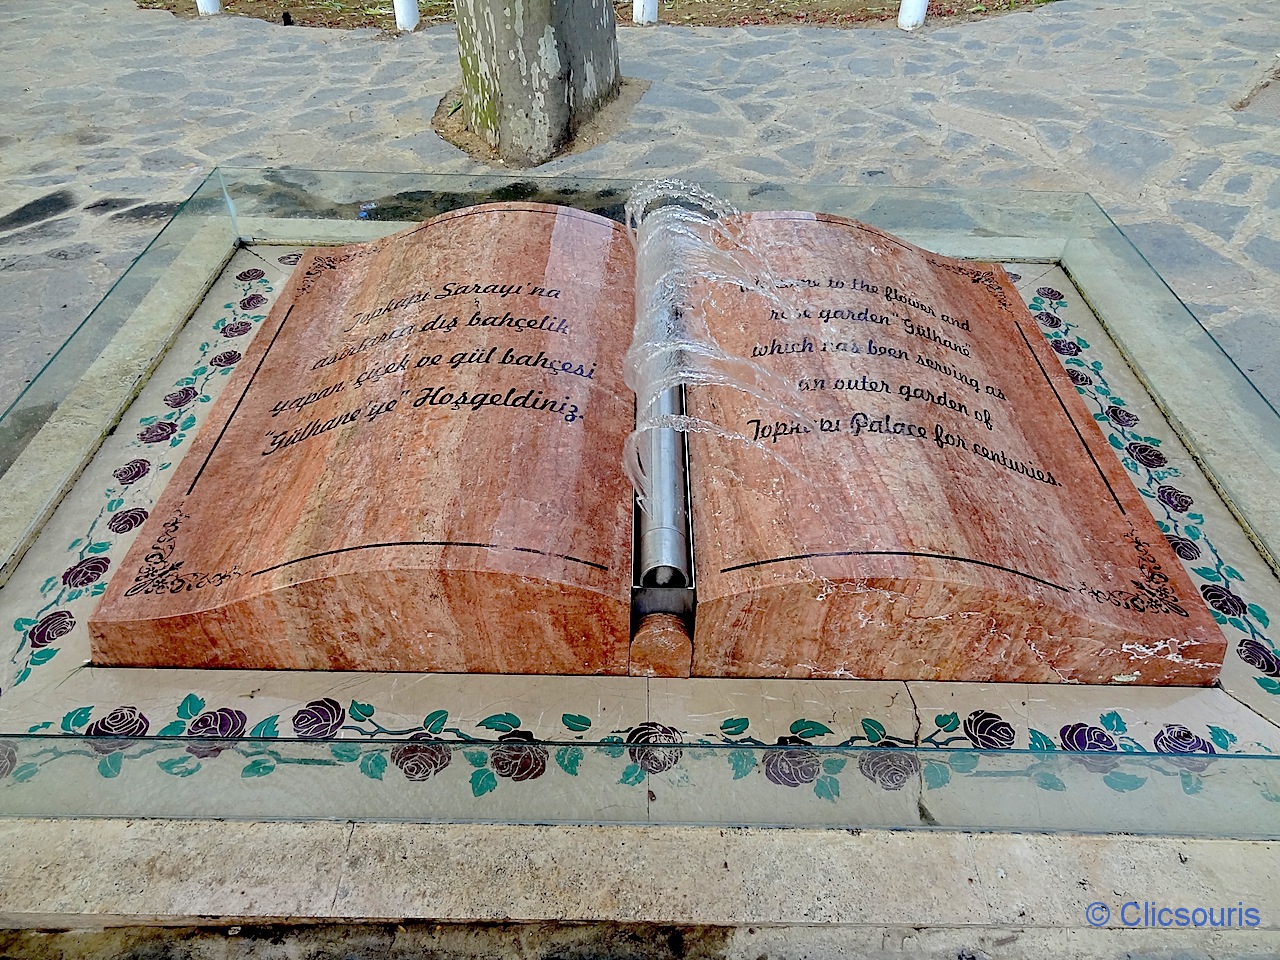 Topkapı Sarayı'na
asırlarca dış bahçelik
yapan, çiçek ve gül bahçesi
"Gülhane'ye" Hoşgeldiniz.
to the flower and
rose garden "Gülhane"
which has been serving as
an outer garden of
Topkapı Palace for centuries.
© Clicsouris